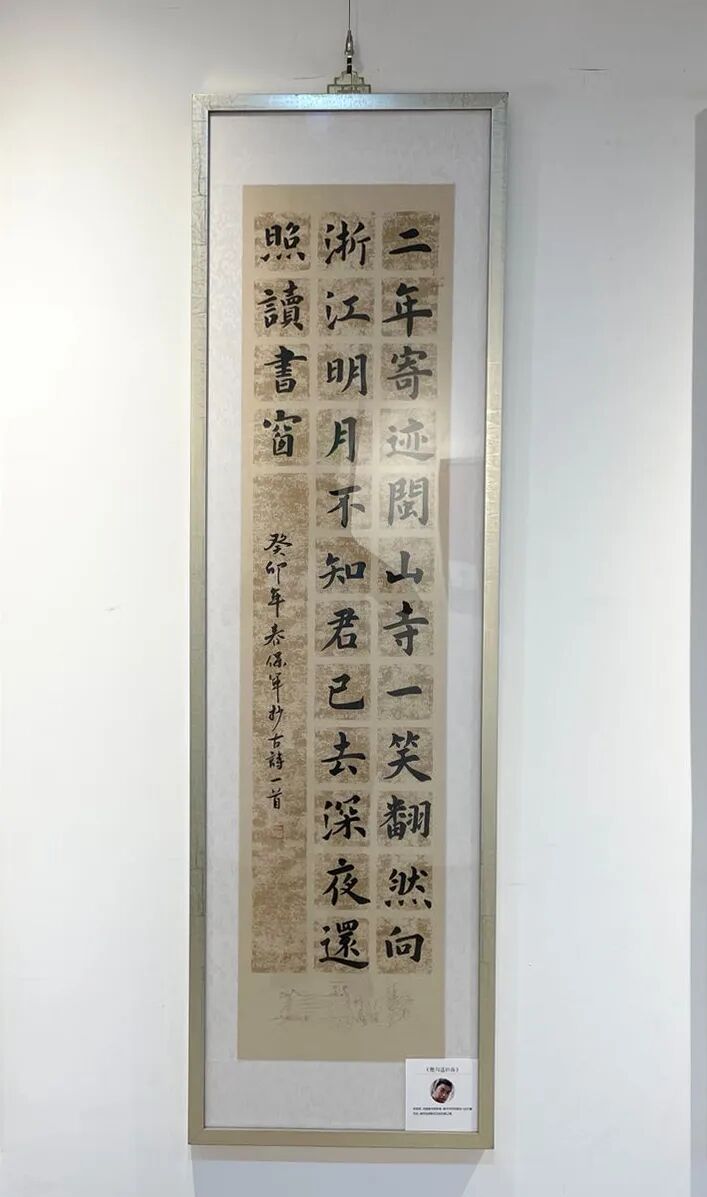 二年寄迹閩山寺一笑翻然向
浙江明月不知君已去深夜還
照讀書窗
癸卯年春保军抄古詩一首